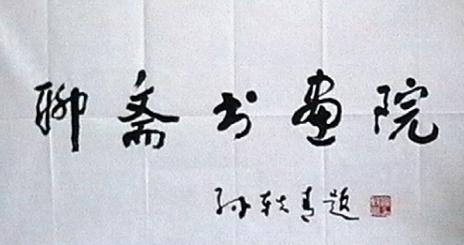 聊斋书画院
孙轶青题